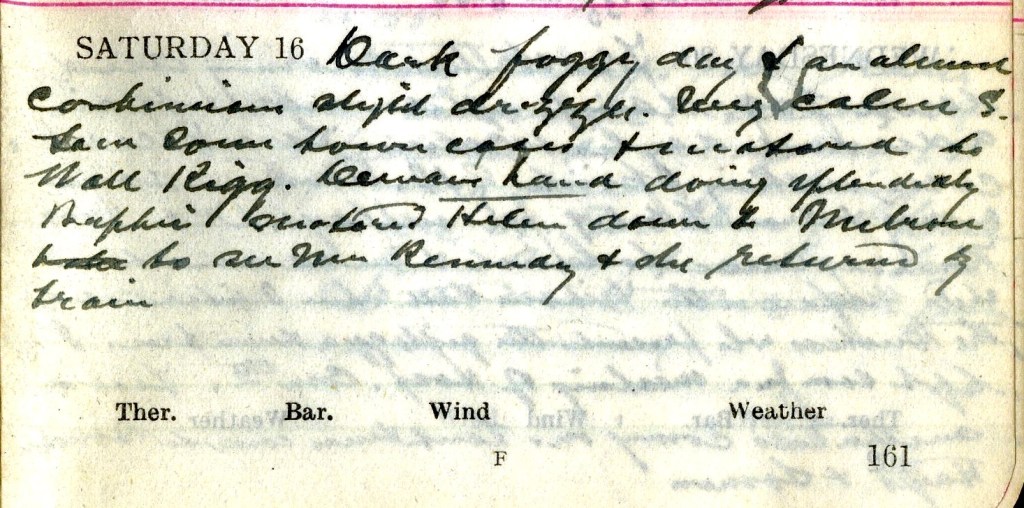 SATURDAY 16 Dark foggy day & an almost
continuous slight drizzle. Very calm S.
Saw some town cases & motored to
Wall Rigg. hand doing splendidly
motored Helen down to Melrose
to see Mrs Kennedy & she returned by
train
Ther. Bar. Wind Weather
F 161